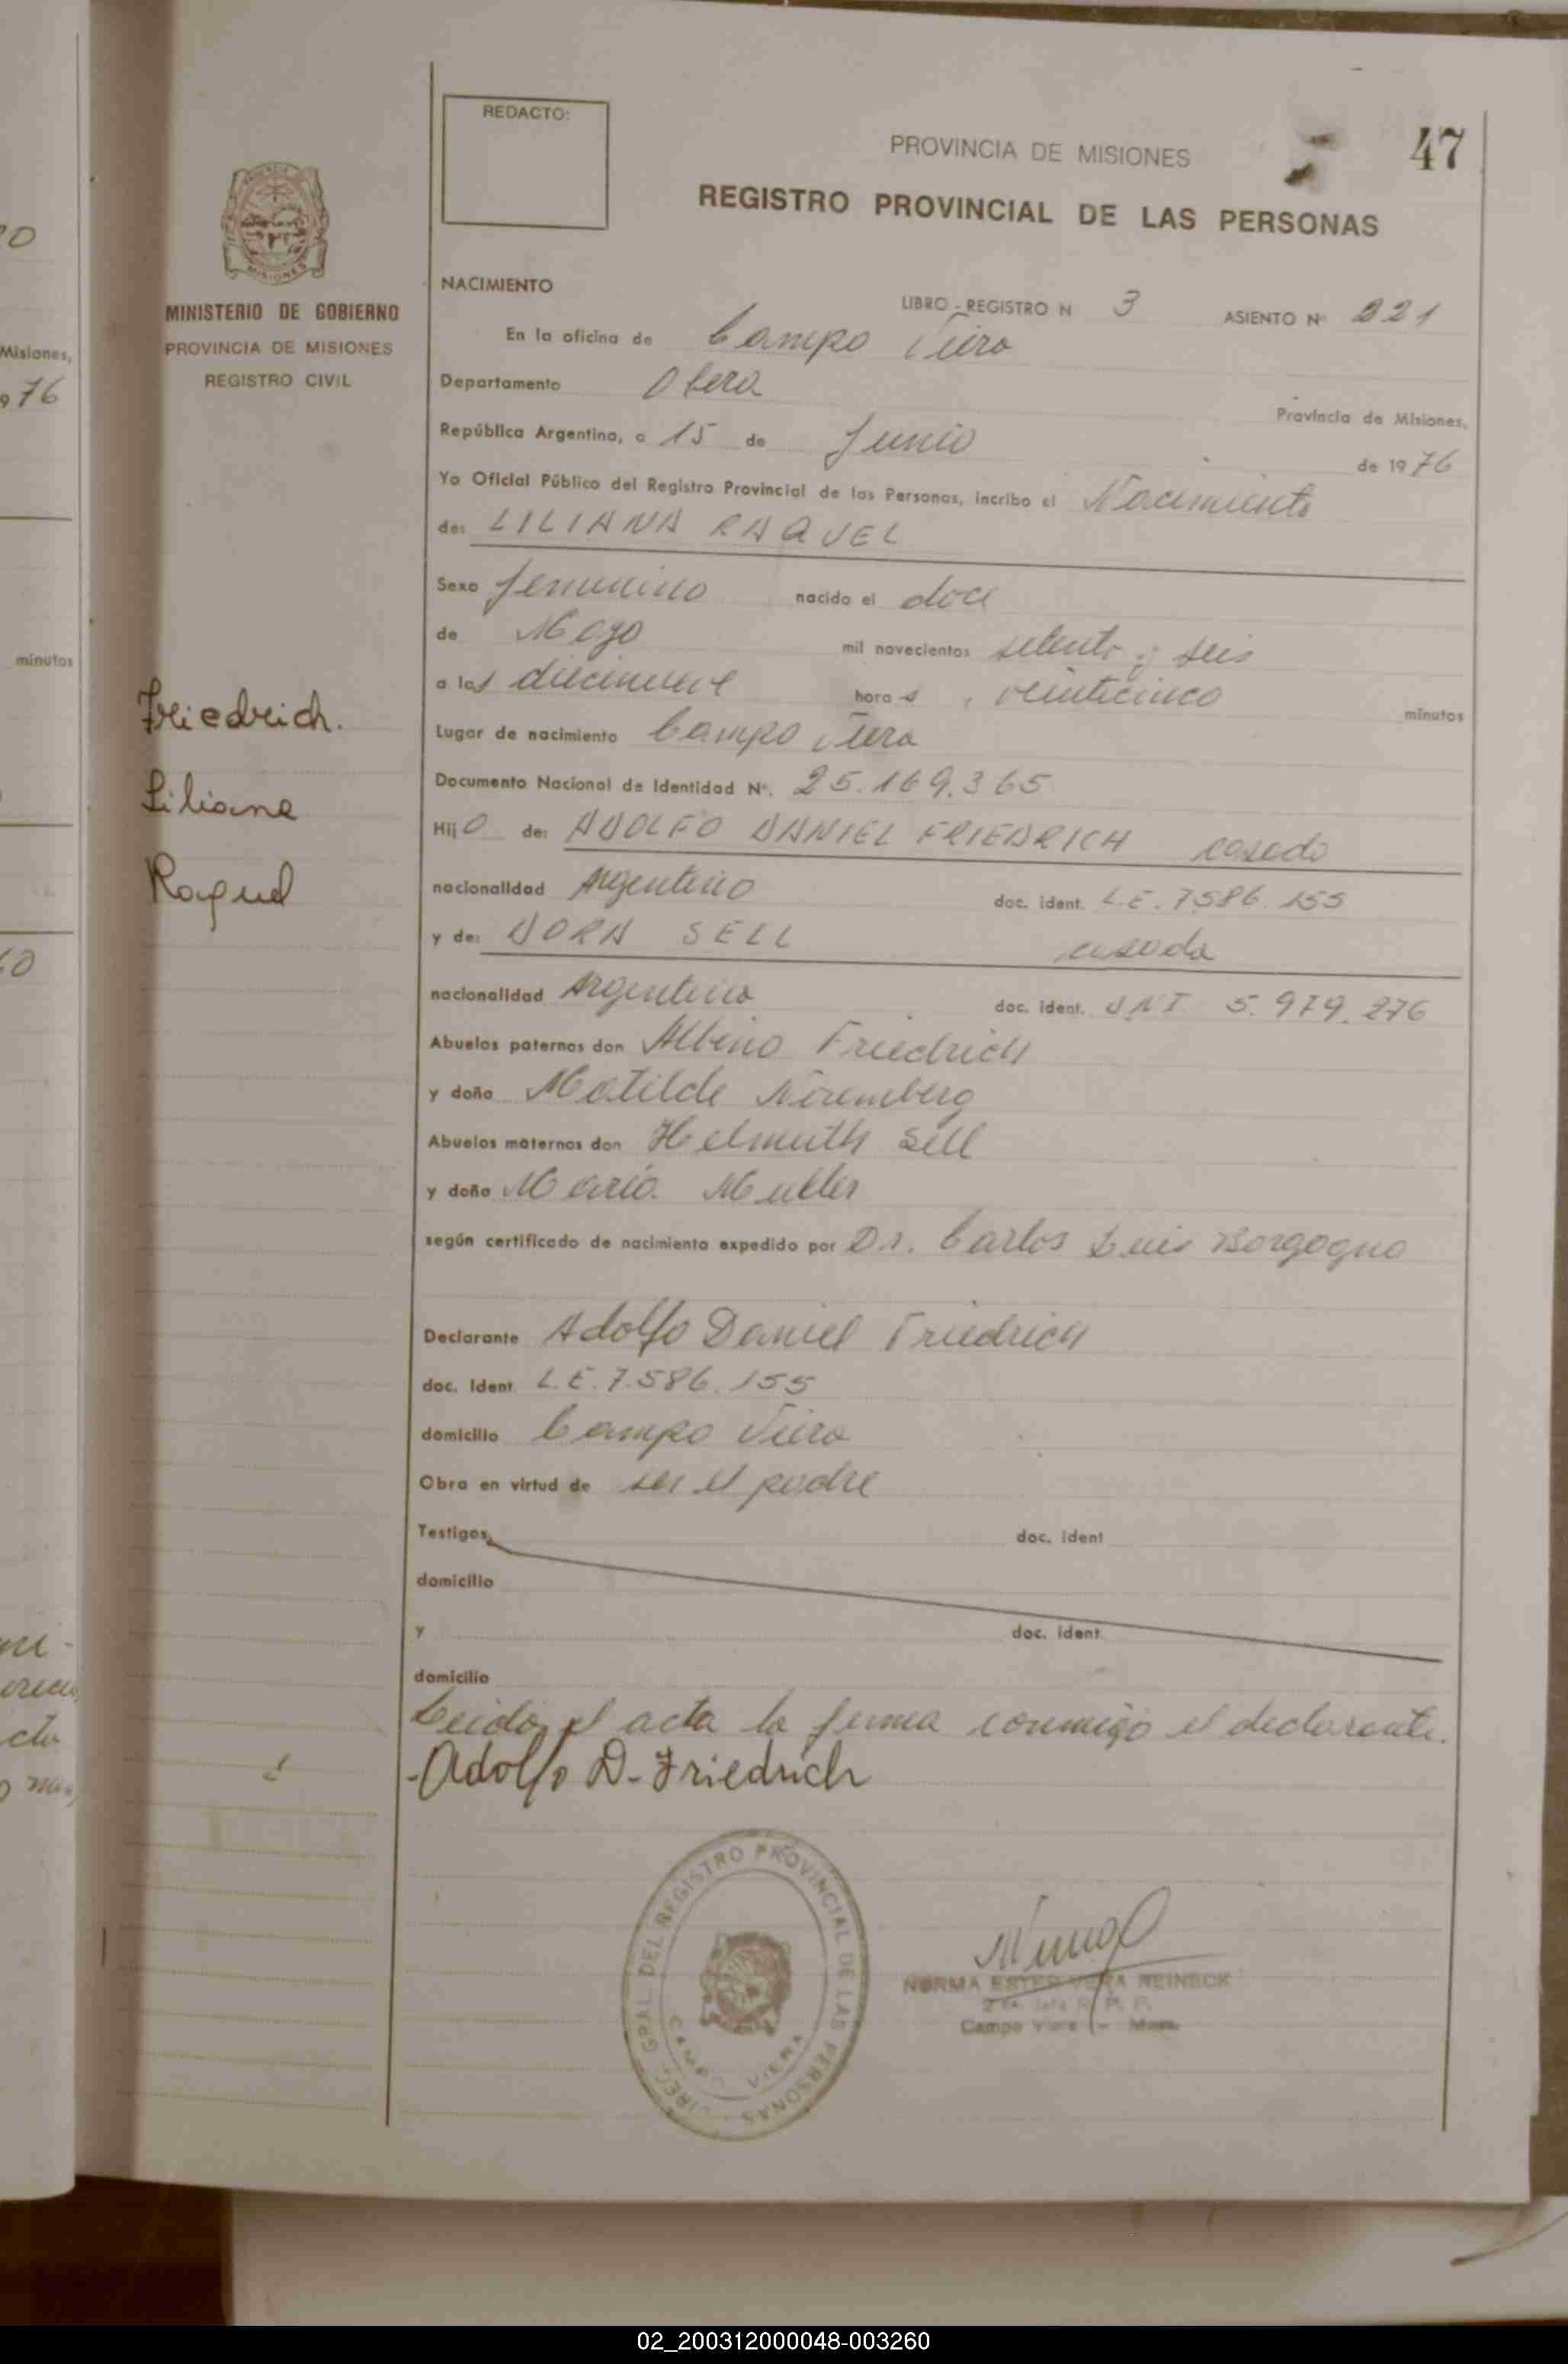 REDACTO:
PROVINCIA DE MISIONES
47
REGISTRO PROVINCIAL DE LAS PERSONAS
MISIONES
MINISTERIO DE GOBIERNO
PROVINCIA DE MISIONES
REGISTRO CIVIL
Friedrich.
Liliana
Raquel
NACIMIENTO
LIBRO - REGISTRO N 3 ASIENTO Nº 221
En la oficina de Campo Viera
Departamento Obera
Provincia de Misiones,
República Argentina, a 15 de Junio de 1976
Yo Oficial Público del Registro Provincial de las Personas, incribo el Nacimiento
de: LILIANA RAQUEL
Sexo femenino nacido el doce
de Mayo mil novecientos setenta y seis
a las diecinueve horas, veinticinco minutos
Lugar de nacimiento Campo Viera
Documento Nacional de Identidad Nº. 25.169.365
Hijo de: ADOLFO DANIEL FRIEDRICH casado
nacionalidad Argentino doc. ident. L.E. 7586.155
y de: DORA SELL casada
nacionalidad Argentina doc. ident. D.N.I. 5.979.276
Abuelos paternos don Albino Friedrich
y doña Matilde Niremberg
Abuelos maternos don Helmuth Sell
y doña Maria Muller
según certificado de nacimiento expedido por Dr. Carlos Luis Borgogno
Declarante Adolfo Daniel Friedrich
doc. Ident. L.E. 7.586.155
domicilio Campo Viera
Obra en virtud de ser el padre
Testigos doc. ident
domicilio
y doc. ident.
domicilio
Leido el acta la firma conmigo el declarante.
-Adolfo D. Friedrich
DIREC. GRAL. DEL REGISTRO PROVINCIAL DE LAS PERSONAS
CAMPO VIERA
NORMA ESTER VERA REINECK
Campo Viera - Mnes.
Misiones,
976
minutos
02_200312000048-003260